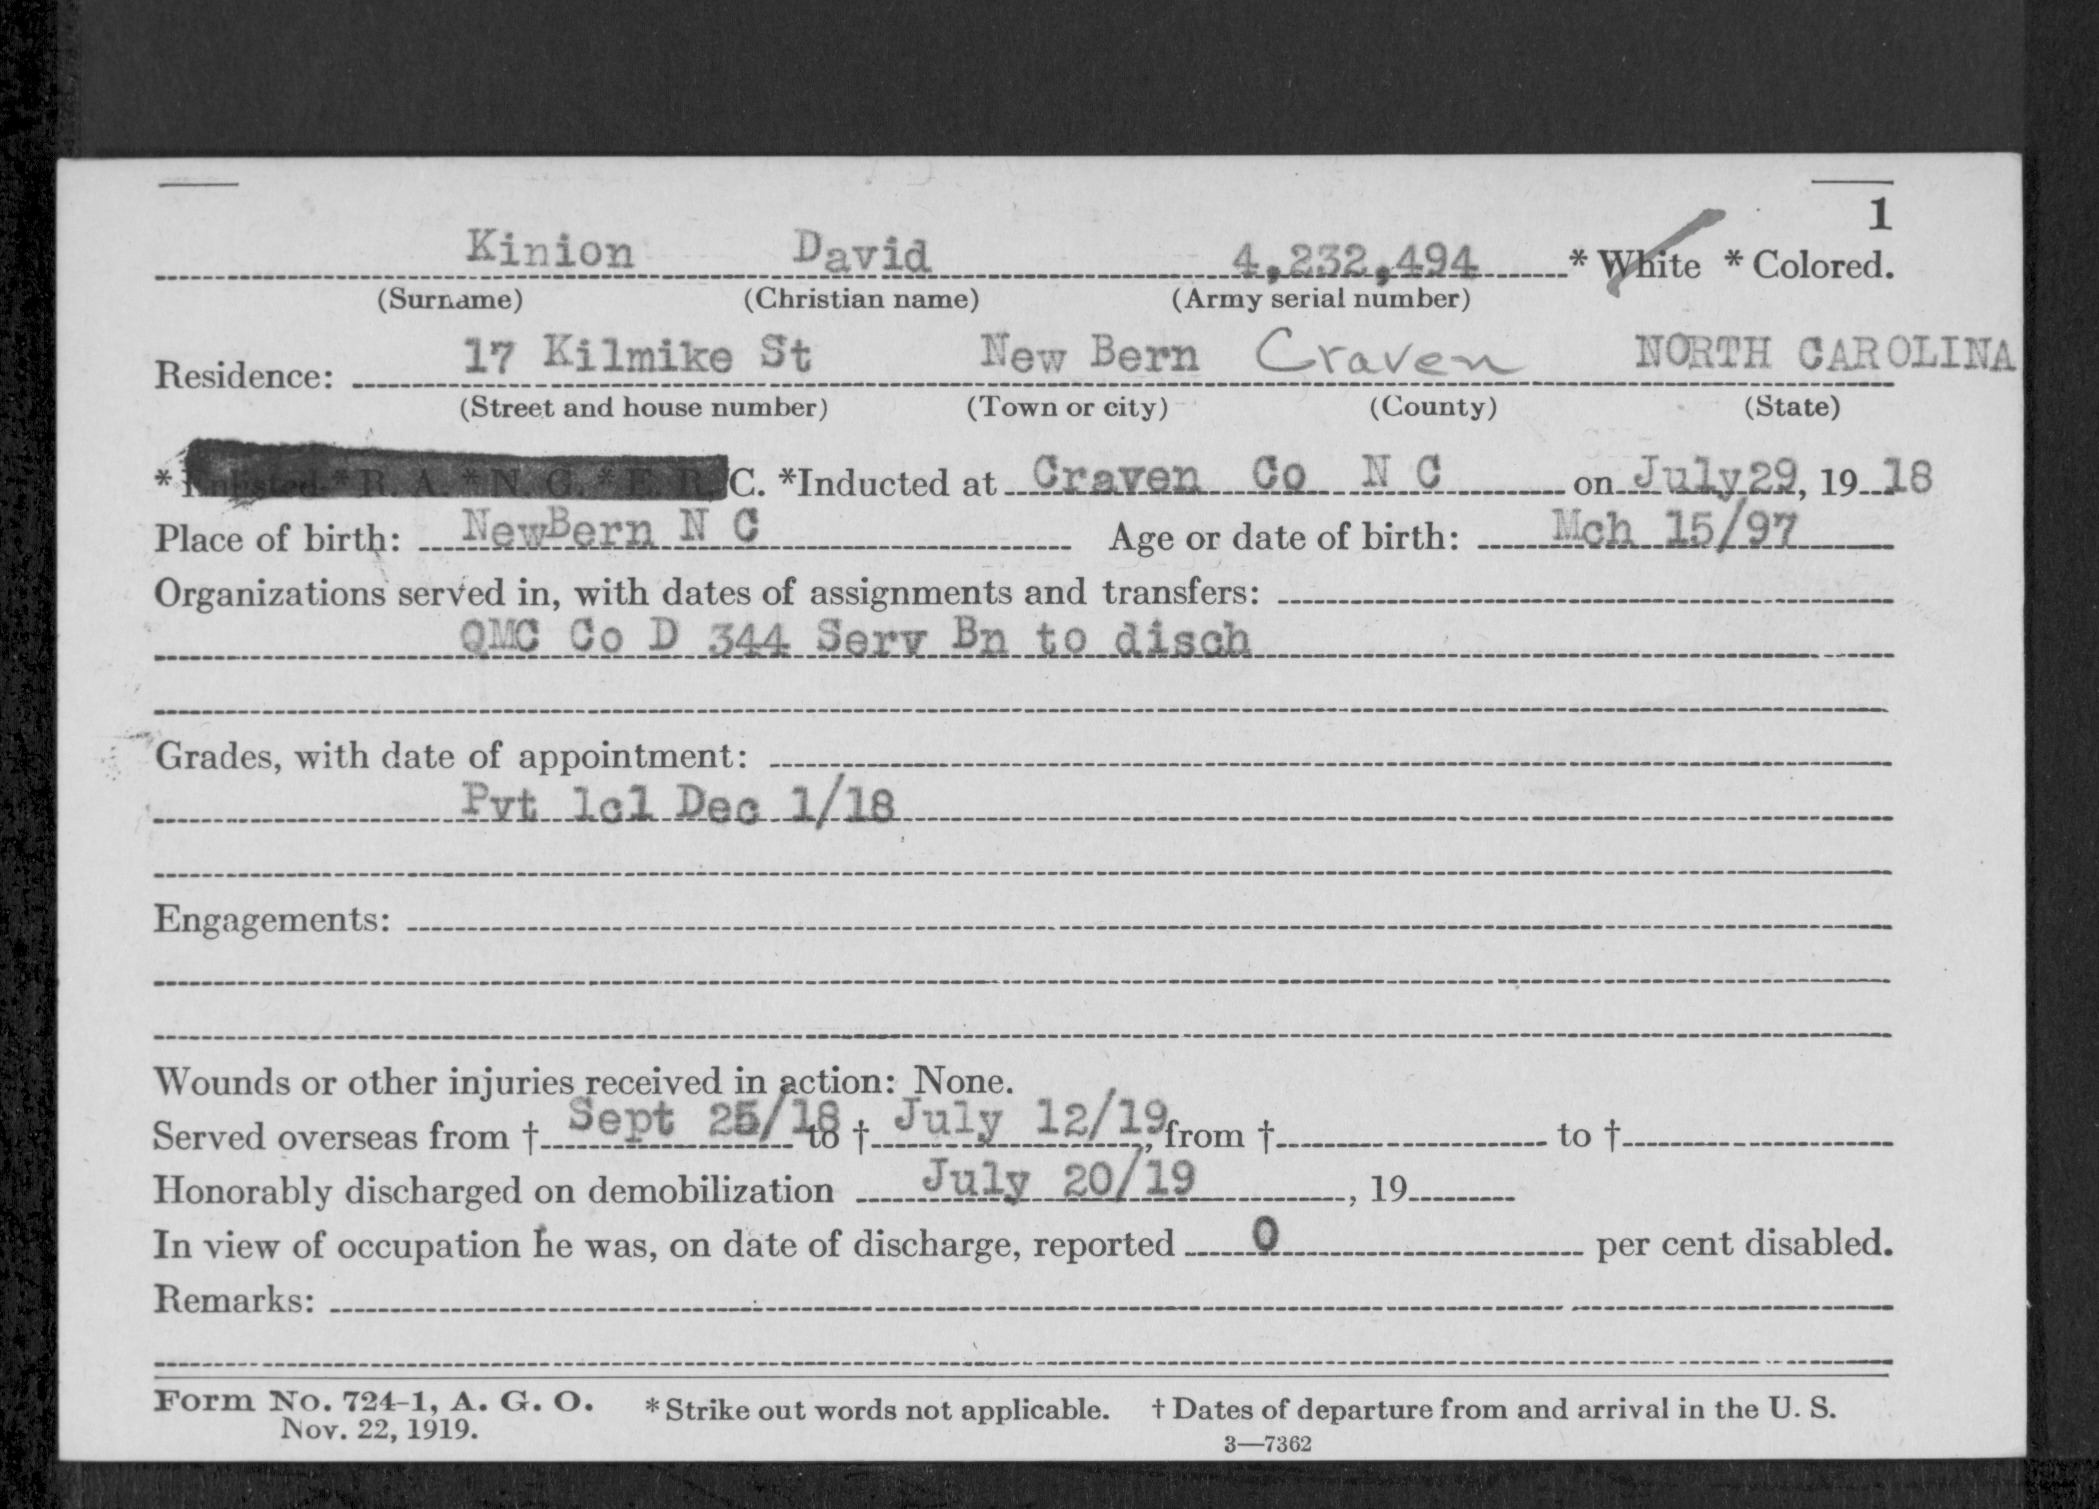 1
Kinion David 4,232,494 * White * Colored.
(Surname) (Christian name) (Army serial number)
Residence: 17 Kilmike St New Bern Craven NORTH CAROLINA
(Street and house number) (Town or city) (County) (State)
* Enlisted * R. A. * N. G. * E. R. C. *Inducted at Craven Co N C on July 29, 19 18
Place of birth: NewBern N C Age or date of birth: Mch 15/97
Organizations served in, with dates of assignments and transfers:
QMC Co D 344 Serv Bn to disch
Grades, with date of appointment:
Pvt 1cl Dec 1/18
Engagements:
Wounds or other injuries received in action: None.
Served overseas from † Sept 25/18 to † July 12/19, from † to †
Honorably discharged on demobilization July 20/19, 19
In view of occupation he was, on date of discharge, reported 0 per cent disabled.
Remarks:
Form No. 724-1, A. G. O. * Strike out words not applicable. † Dates of departure from and arrival in the U. S.
Nov. 22, 1919.
3—7362